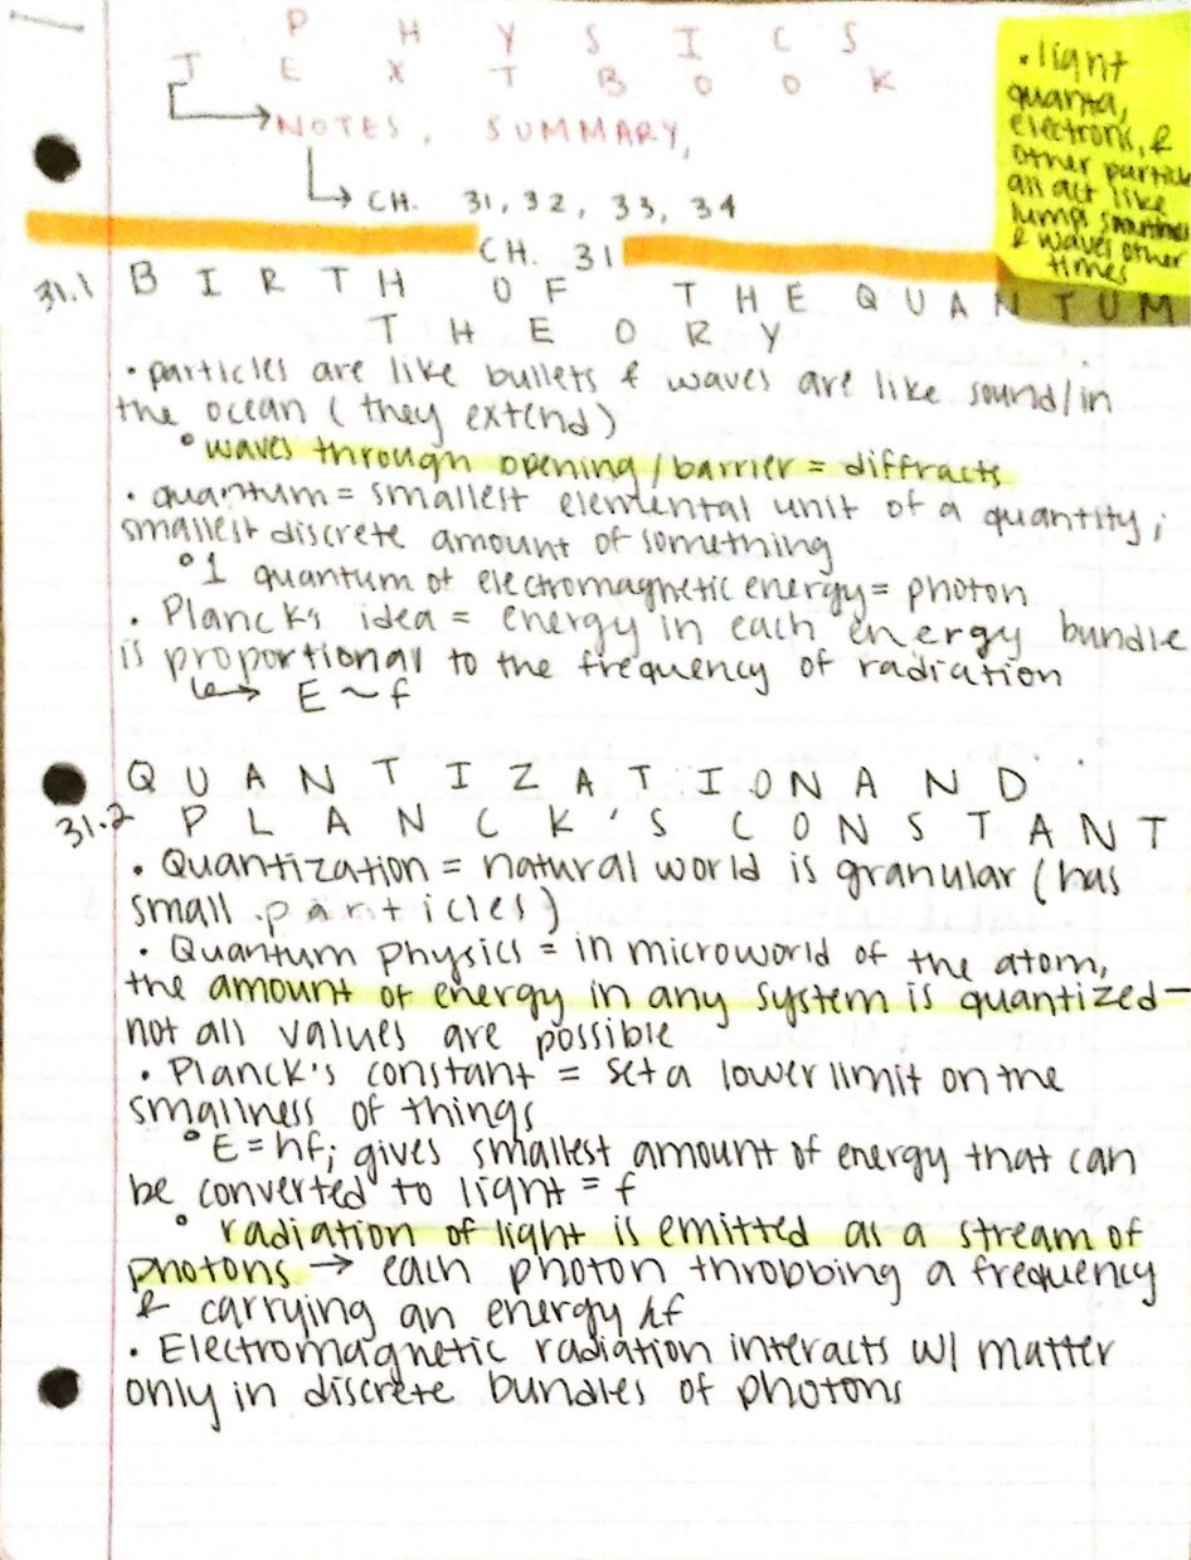 PHYSICS
TEXTBOOK
→ NOTES, SUMMARY,
↳ CH. 31, 32, 33, 34
• light
quanta,
electrons, &
other particles
all act like
lumps sometimes
& waves other
times
CH. 31
31.1 BIRTH OF THE QUANTUM
THEORY
• particles are like bullets & waves are like sound/in
the ocean (they extend)
° waves through opening/barrier = diffracts
• quantum = smallest elemental unit of a quantity;
smallest discrete amount of something
° 1 quantum of electromagnetic energy = photon
• Planck's idea = energy in each energy bundle
is proportional to the frequency of radiation
↳ E ~ f
QUANTIZATION AND
31.2 PLANCK'S CONSTANT
• Quantization = natural world is granular (has
small particles)
• Quantum Physics = in microworld of the atom,
the amount of energy in any system is quantized—
not all values are possible
• Planck's constant = set a lower limit on the
smallness of things
° E = hf; gives smallest amount of energy that can
be converted to light = f
° radiation of light is emitted as a stream of
photons → each photon throbbing a frequency
& carrying an energy hf
• Electromagnetic radiation interacts w/ matter
only in discrete bundles of photons